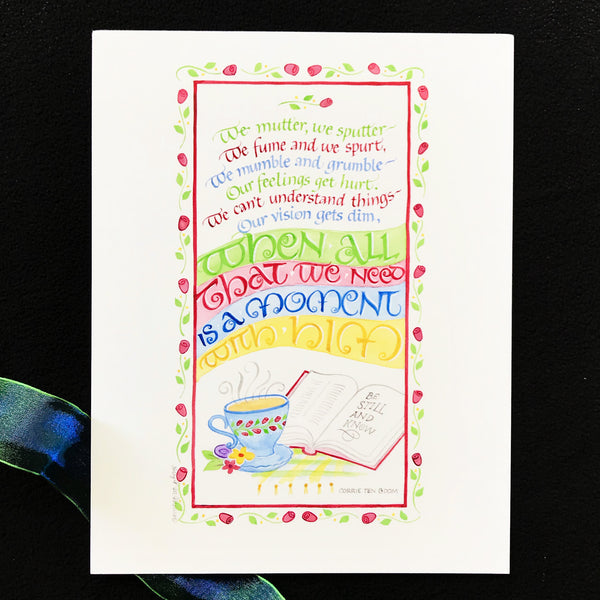 We mutter, we sputter–
We fume and we spurt,
We mumble and grumble–
Our feelings get hurt.
We can't understand things–
Our vision gets dim,
WHEN ALL
THAT WE NEED
IS A MOMENT
WITH HIM
BE
STILL
AND
KNOW
CORRIE TEN BOOM